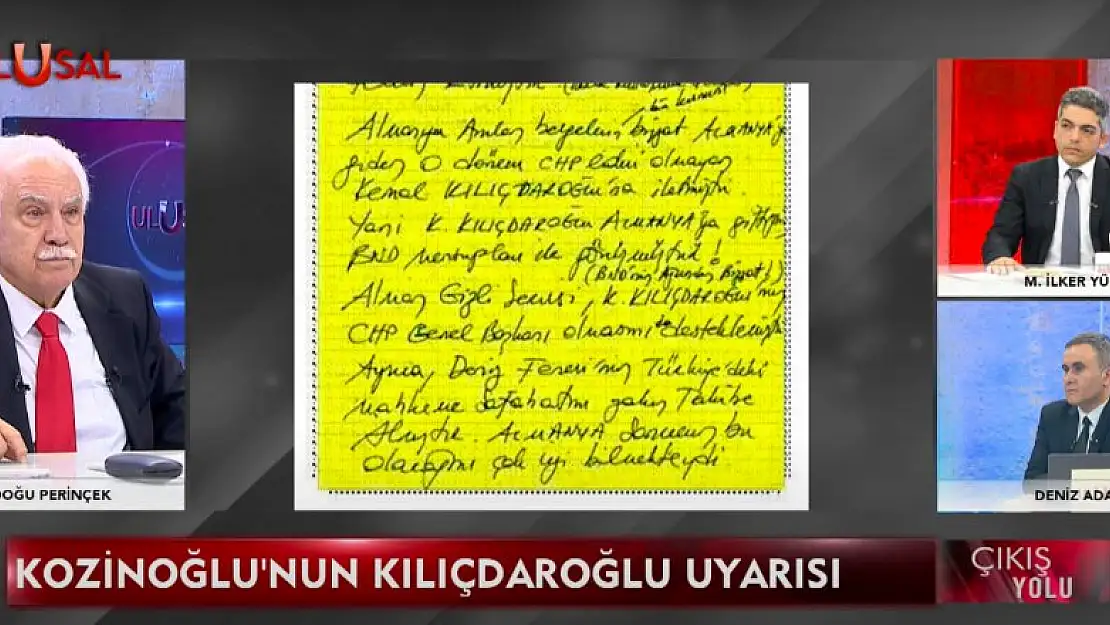 ULUSAL
Almanya
belgeleri bizzat ALMANYA'ya
giden o dönem CHP lideri olmayan
Kemal KILIÇDAROĞLU'na iletmişti.
Yani K. KILIÇDAROĞLU ALMANYA'ya
BND mensupları ile görüşmüştür!
(BND'nin Bizzat!)
Alman Gizli Servisi, K. KILIÇDAROĞLU'nun
CHP Genel Başkanı olmasını da desteklemiştir
Ayrıca, Deniz Feneri'nin Türkiye'deki
mahkeme safahatını yakın Takibe
almıştır. ALMANYA bu
olacağını çok iyi bilmekteydi
ULUSAL
DOĞU PERİNÇEK
M. İLKER YÜ
DENİZ ADA
KOZİNOĞLU'NUN KILIÇDAROĞLU UYARISI
ÇIKIŞ
YOLU